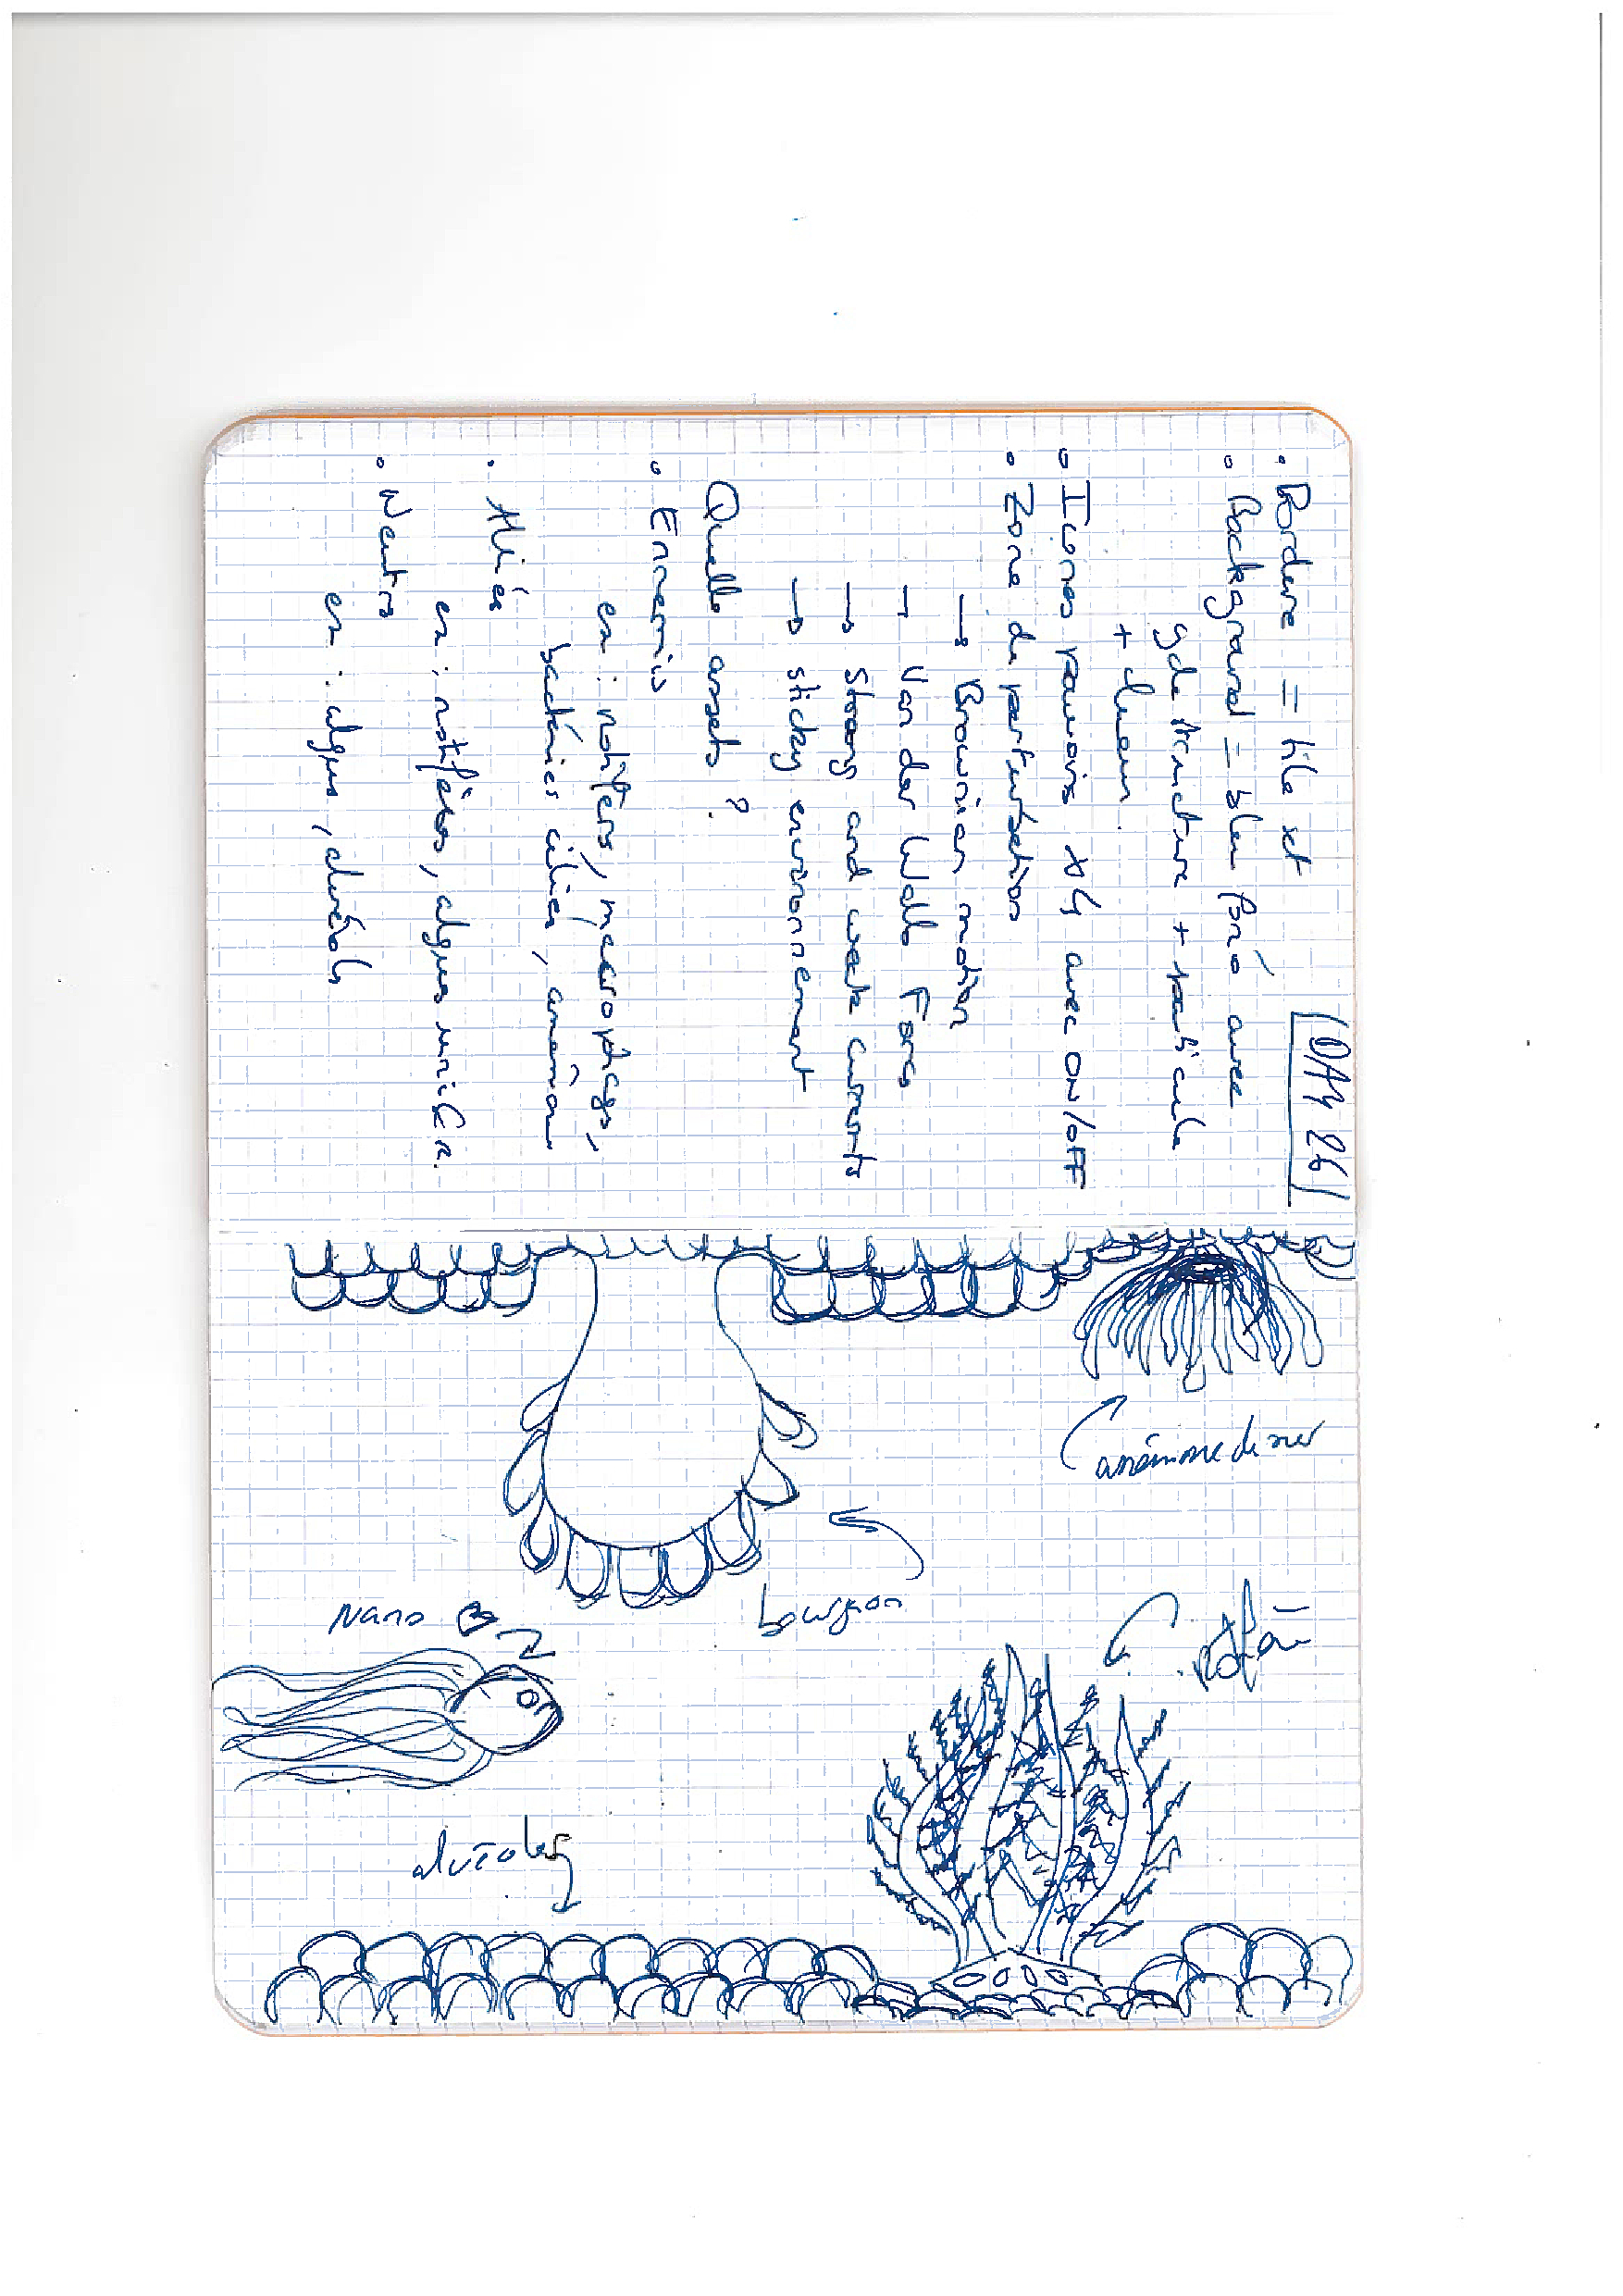 DAY 26
• Bordure = tile set
• Background = bleu foncé avec
gde structure + particule
+ lueur.
• Icones pouvoirs x4 avec on/off
• Zone de perturbation
→ Brownian motion
→ Van der Walls Force
→ Strong and weak currents
→ sticky environnement
Quells assets ?
• Ennemis
ex : rotifers, macrophages,
bactéries ciliées, anémone
• Alliés
ex : rotifères, algues unicell.
• Neutres
ex : algues, alvéole
anémone de mer
bourgeon
Nano
alvéoles